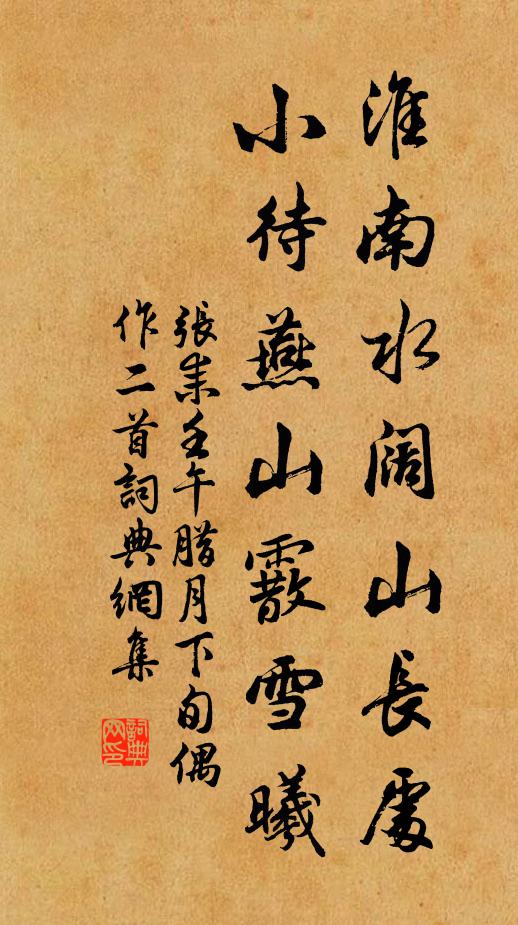 淮南水阔山長處
小待燕山霰雪曦
張耒壬午腊月下旬偶
作二首詞典網集
詞典网印